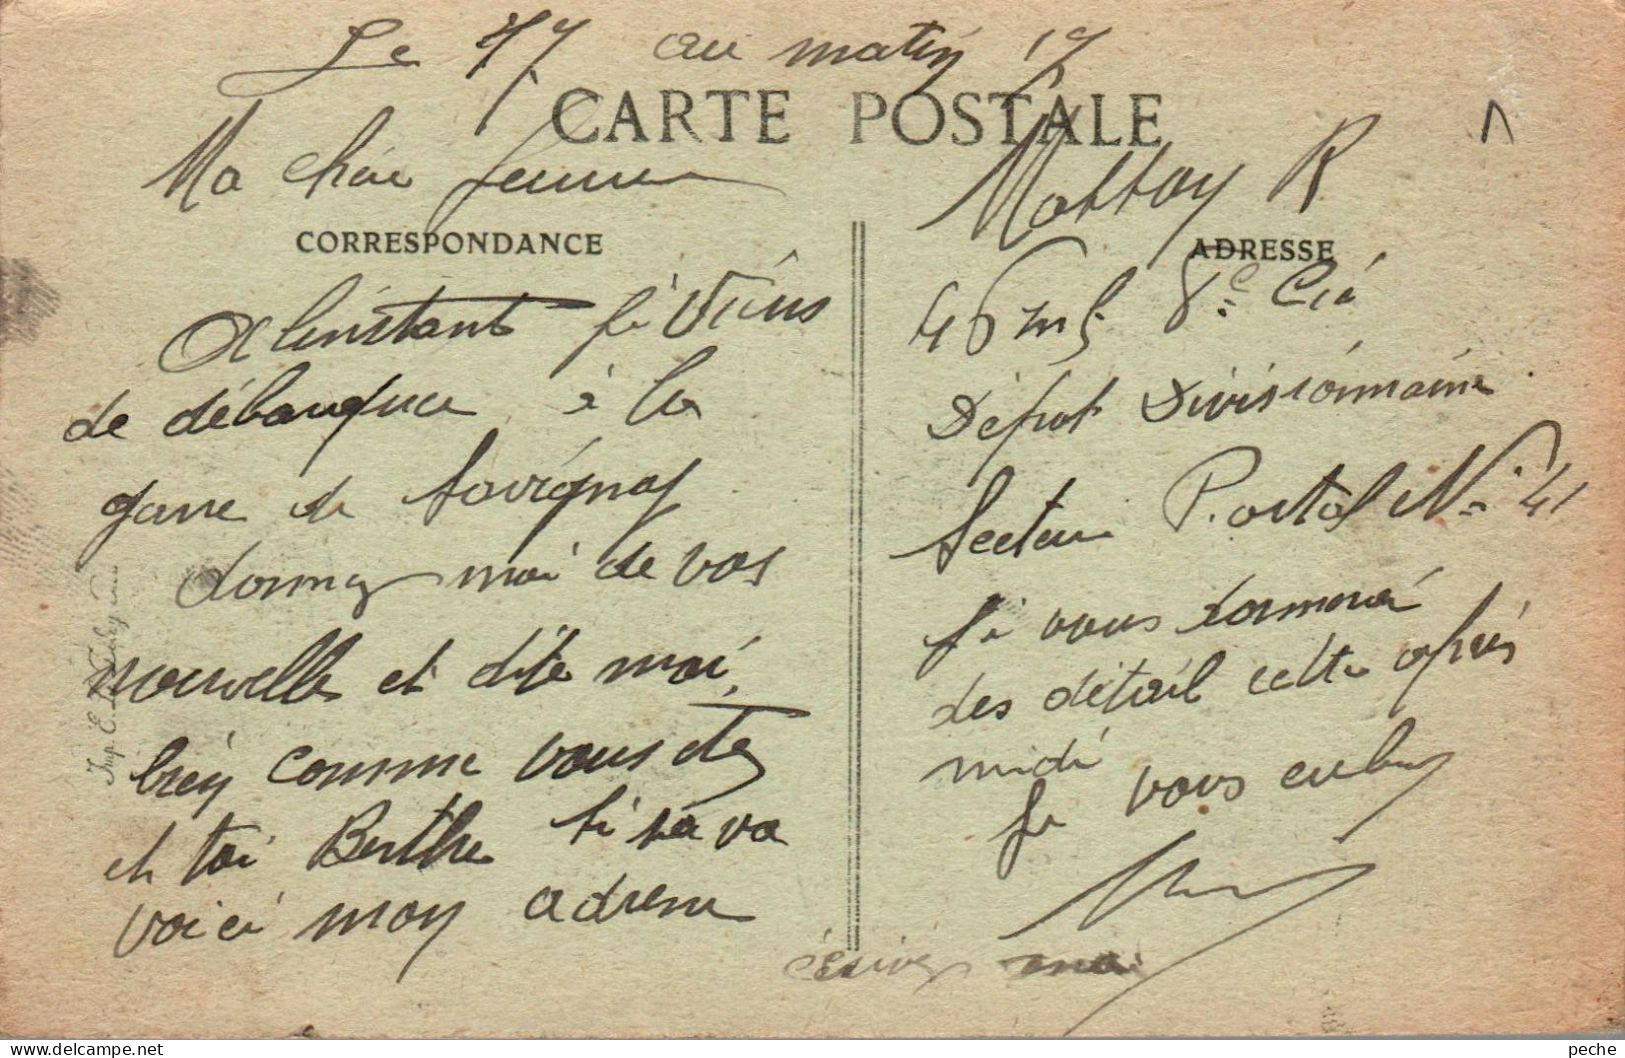 Le 17 au matin 17
CARTE POSTALE
Ma chère femme
CORRESPONDANCE
A linstant je viens
de débarquer à la
gare de Savignay
donnez moi de vos
nouvelle et dite moi
bien comme vous etes
et toi Berthe si sa va
voici mon adresse
Mattay R
ADRESSE
46 8e Cie
Dépot Divisionnaire
Secteur Postal No 41
Je vous donnerai
des détail cette après
midi
Je vous embras
écrivez moi
peche